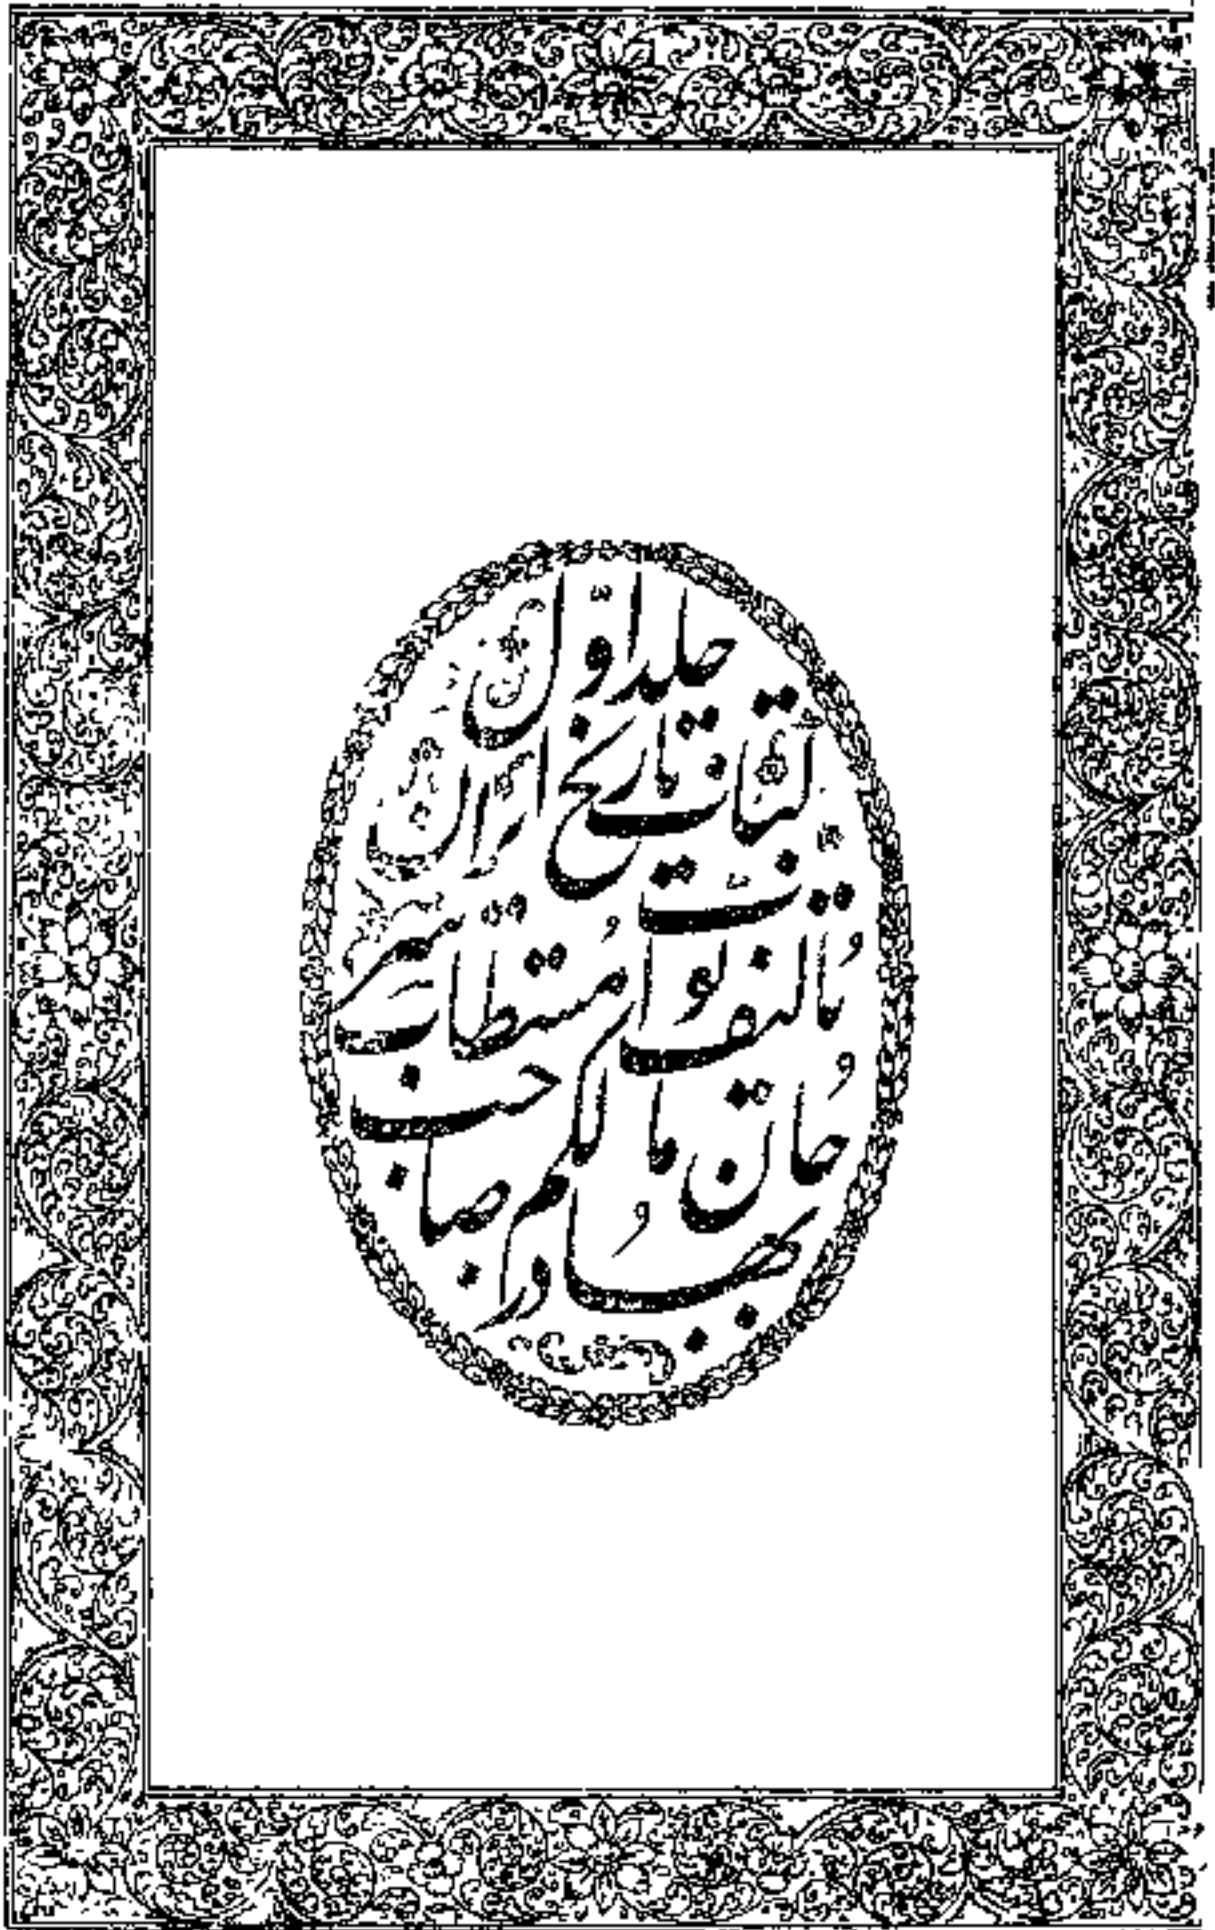 جلد اوّل
کتاب تاریخ ایران
تألیف نواب مستطاب سر
جان مالکم صاحب
بهادر